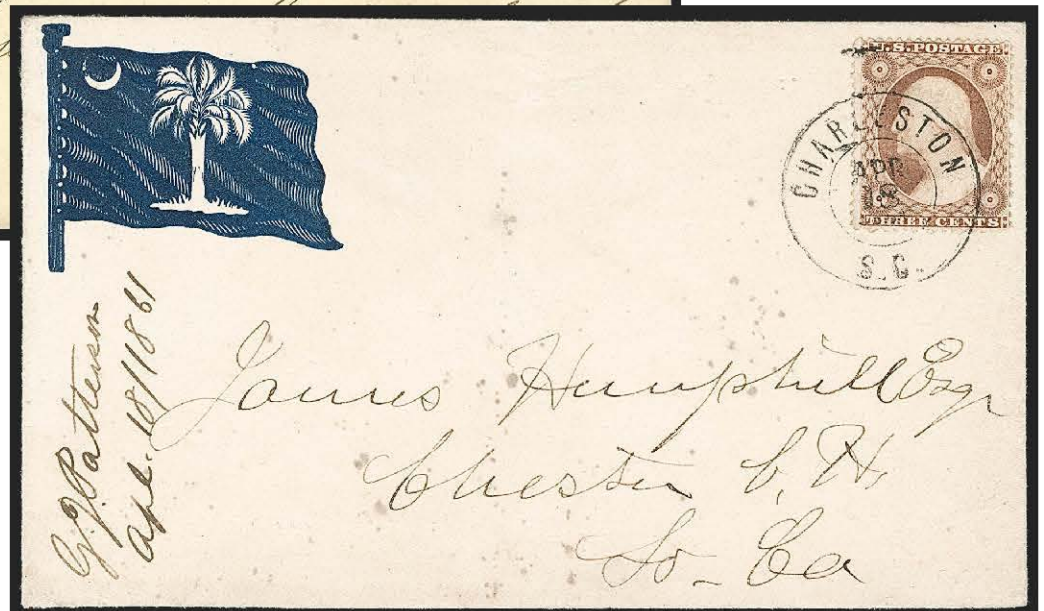 U.S. POSTAGE
THREE CENTS
CHARLESTON
APR
18
S.C.
G. J. Patterson
Apl. 18/1861
James Hemphill Esqr
Chester C. H.
So- Ca